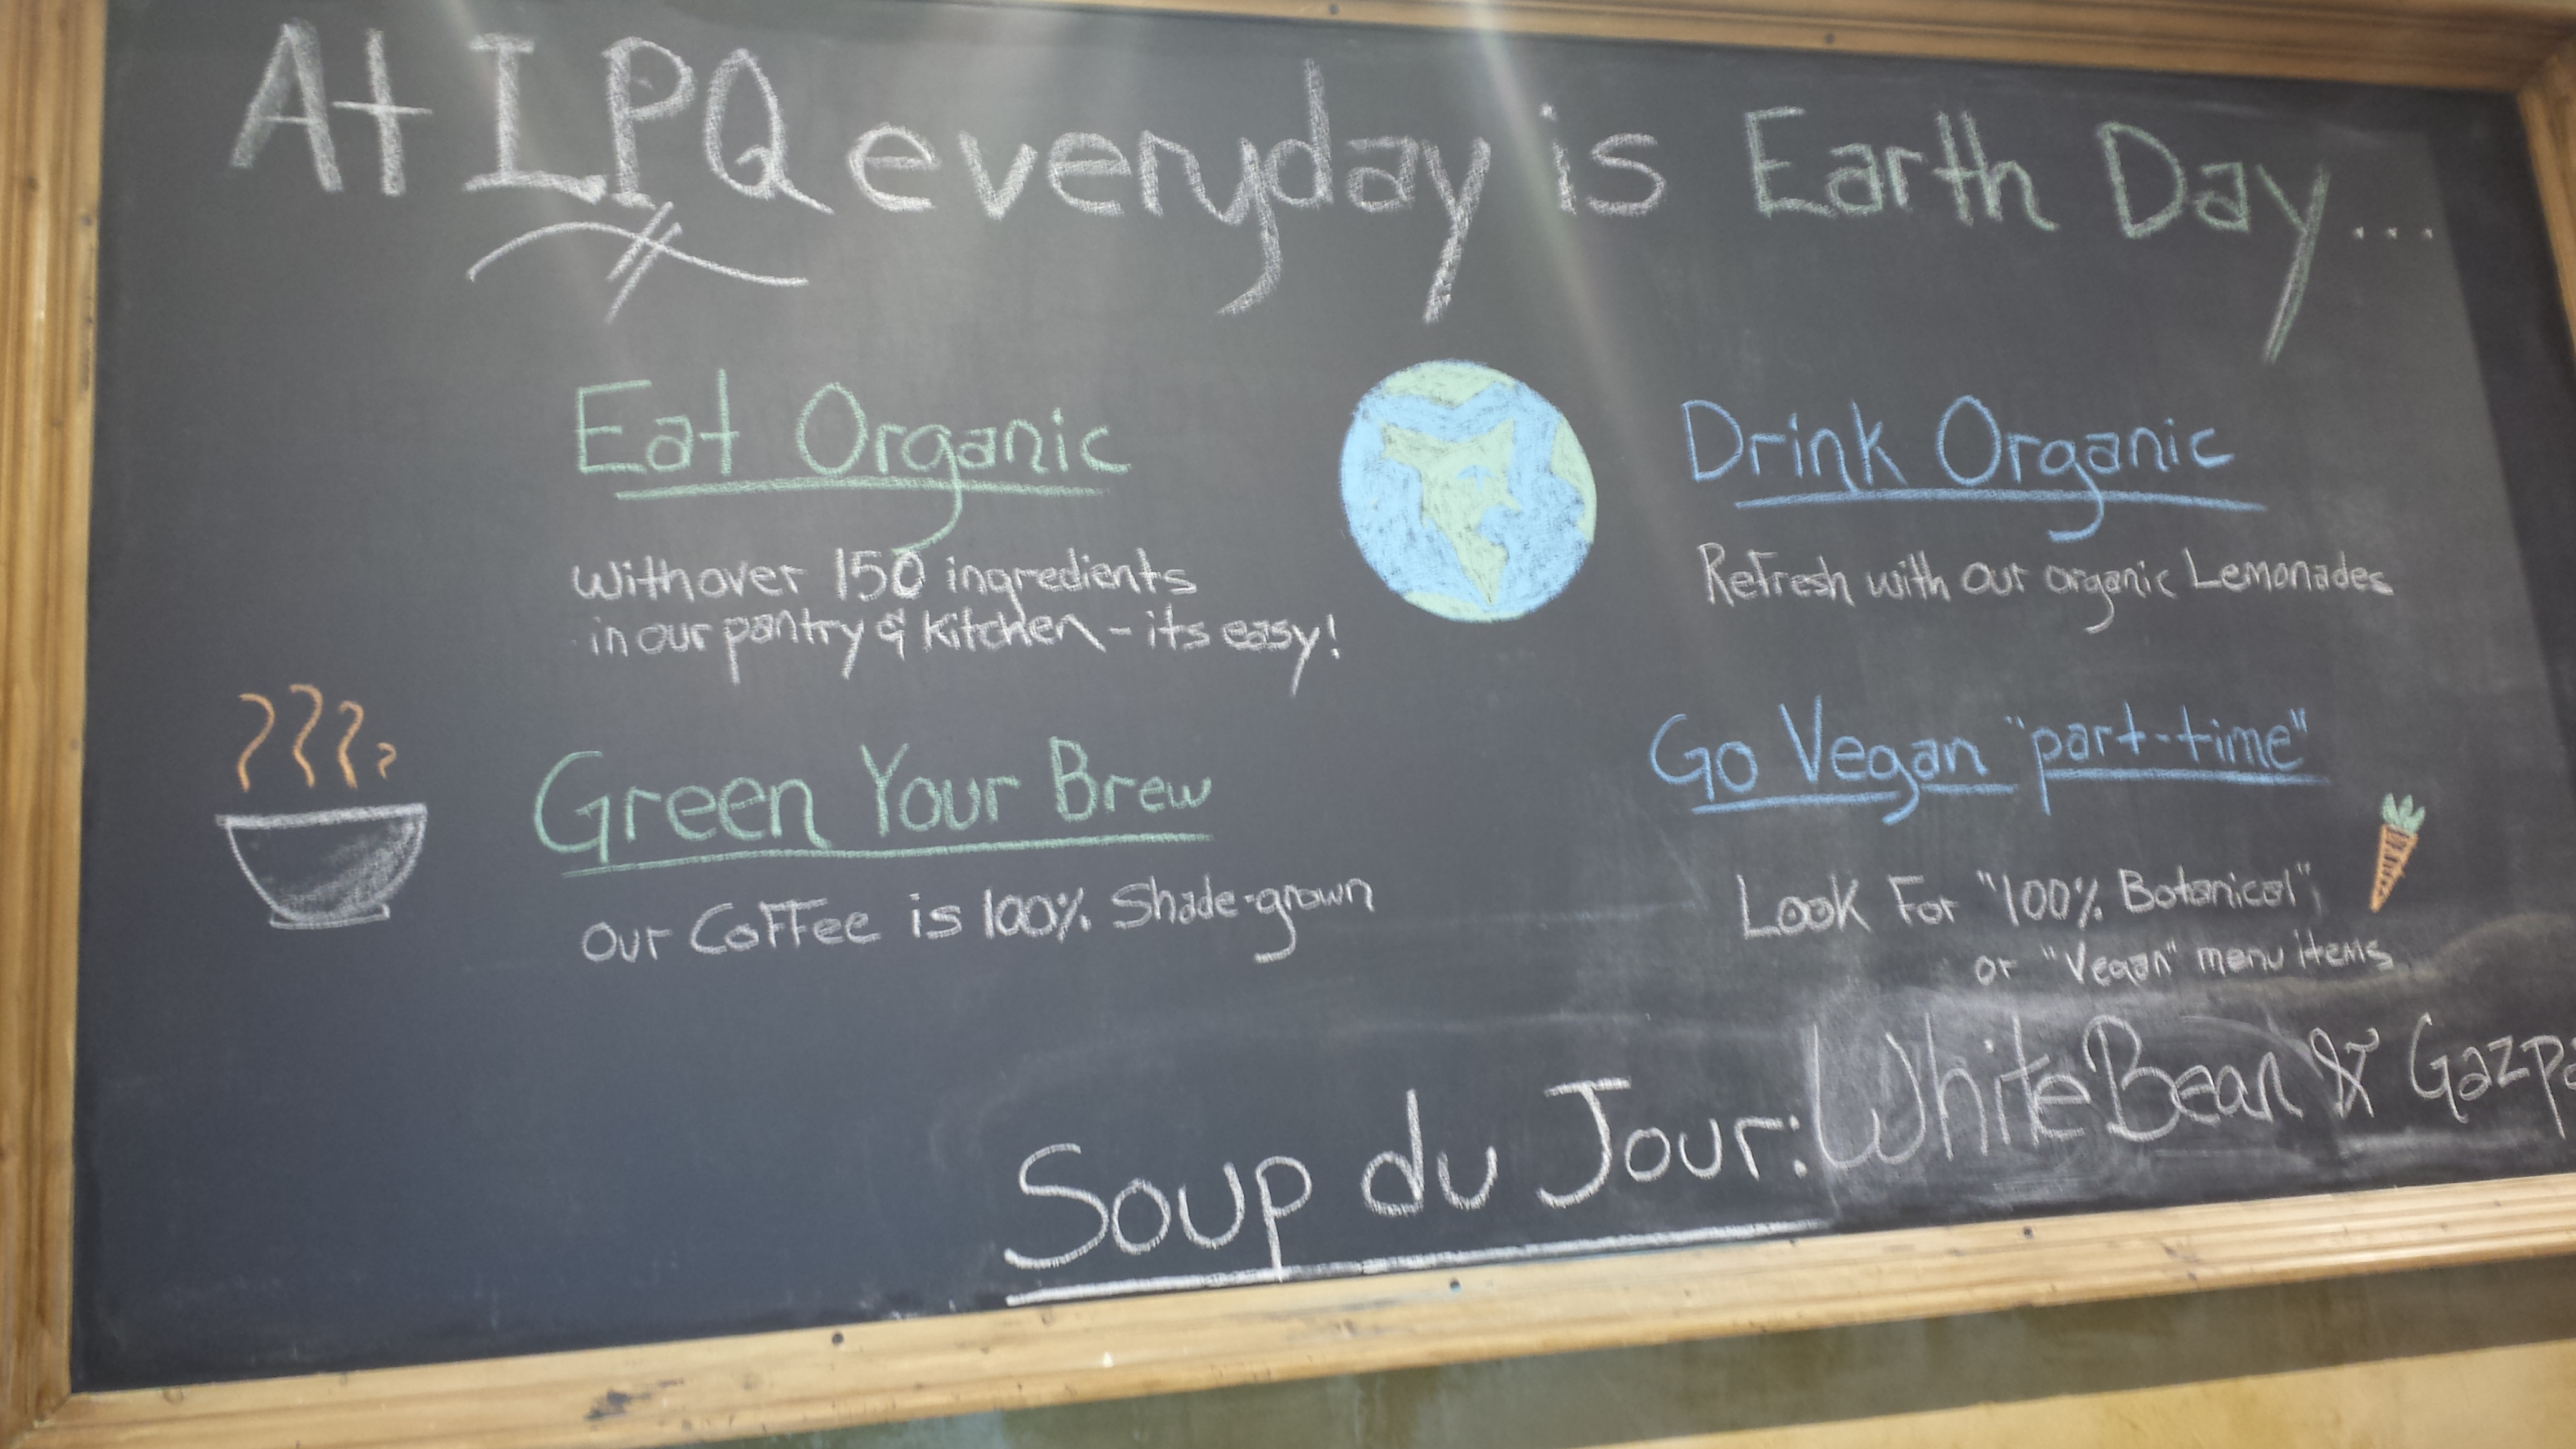 At LPQ everyday is Earth Day...
Eat Organic
with over 150 ingredients
in our pantry & kitchen - its easy!
Drink Organic
Refresh with our organic Lemonades
Green Your Brew
our Coffee is 100% Shade-grown
Go Vegan "part-time"
Look For "100% Botanical",
or "Vegan" menu items
Soup du Jour: White Bean & Gazpa